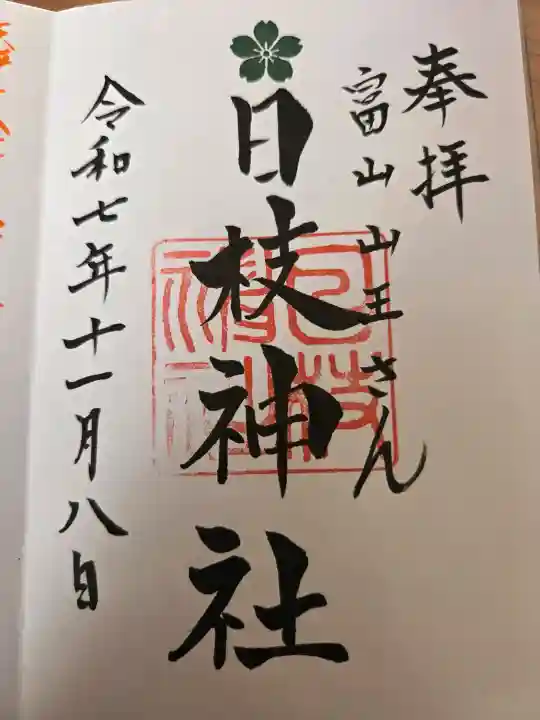 奉拝
富山山王さん
日枝神社
日枝神社
令和七年十一月八日